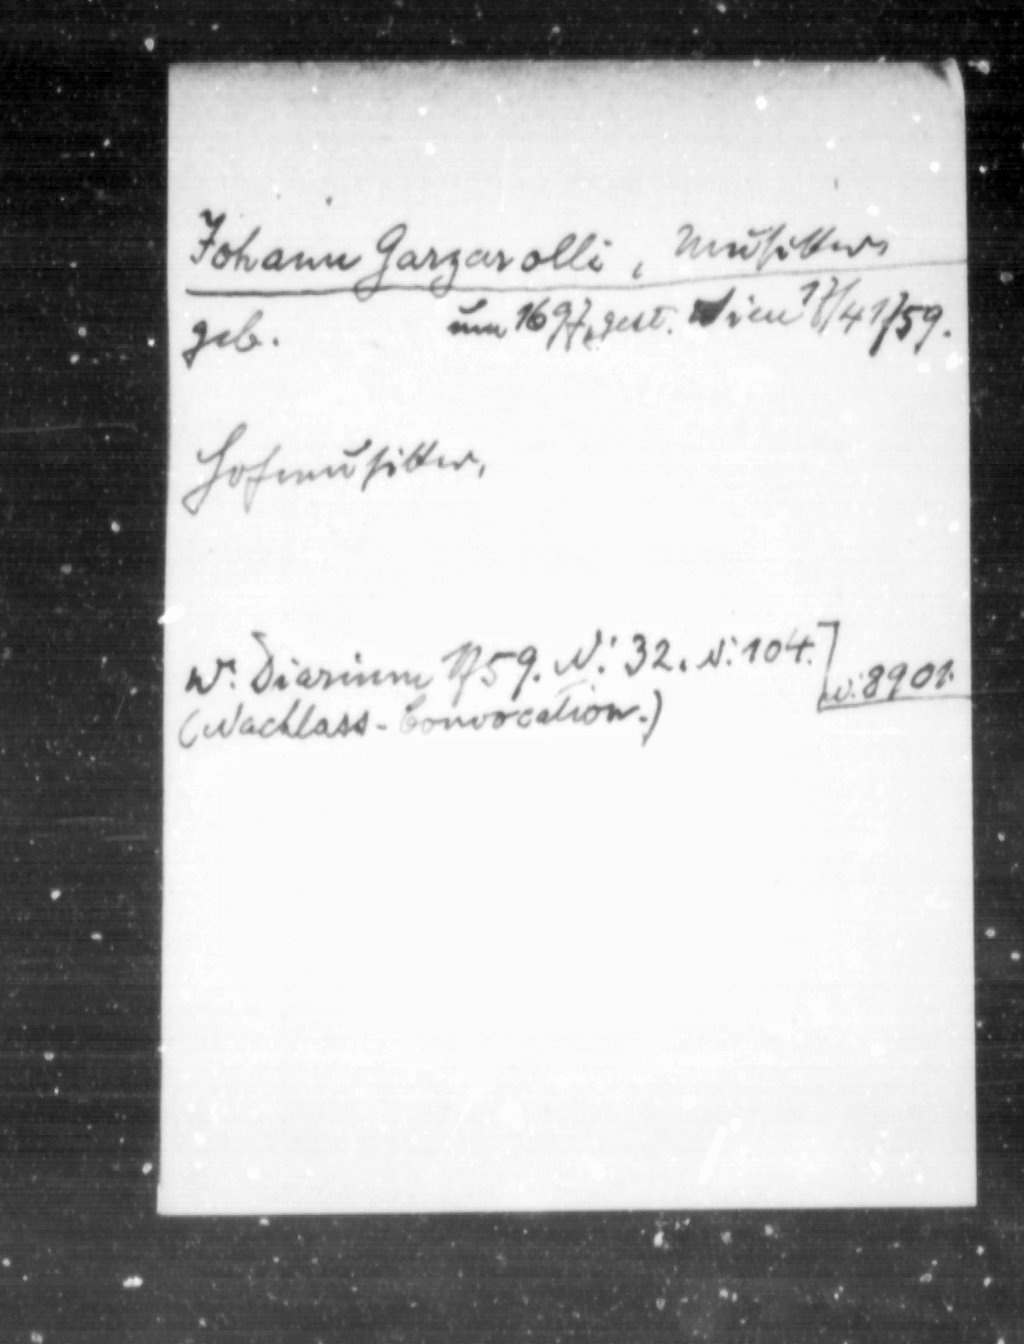 Johann Garzarolli, Musiker
geb. um 1697, gest. Wien 17/4 1759.
Hofmusiker,
W. Diarium 1759. N: 32. N: 104.
(Nachlass-Convocation.)
8901.